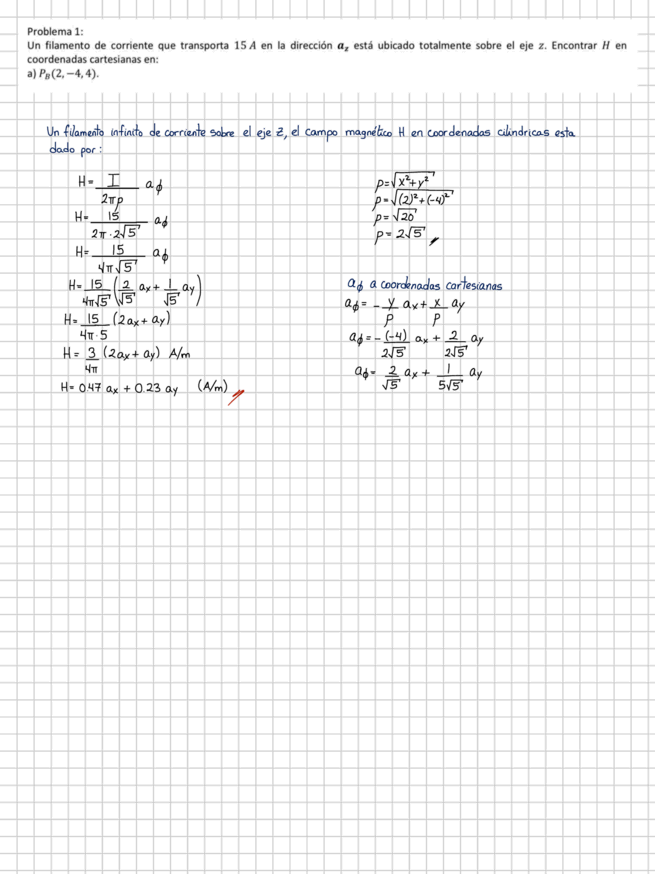 Problema 1:
Un filamento de corriente que transporta 15 A en la dirección a_z está ubicado totalmente sobre el eje z. Encontrar H en
coordenadas cartesianas en:
a) P_B(2, −4, 4).
Un filamento infinito de corriente sobre el eje z, el campo magnético H en coordenadas cilíndricas esta
dado por:
H = I/(2πρ) aϕ
H = 15/(2π · 2√5) aϕ
H = 15/(4π√5) aϕ
H = 15/(4π√5) (2/√5 ax + 1/√5 ay)
H = 15/(4π · 5) (2ax + ay)
H = 3/(4π) (2ax + ay) A/m
H = 0.47 ax + 0.23 ay (A/m)
ρ = √(x² + y²)
ρ = √((2)² + (-4)²)
ρ = √20
ρ = 2√5
aϕ a coordenadas cartesianas
aϕ = - y/ρ ax + x/ρ ay
aϕ = - (-4)/(2√5) ax + 2/(2√5) ay
aϕ = 2/√5 ax + 1/(5√5) ay